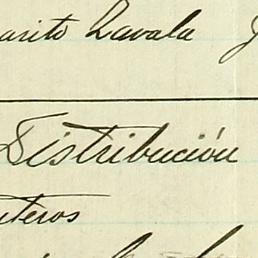 arito Zavala
Distribución
teros